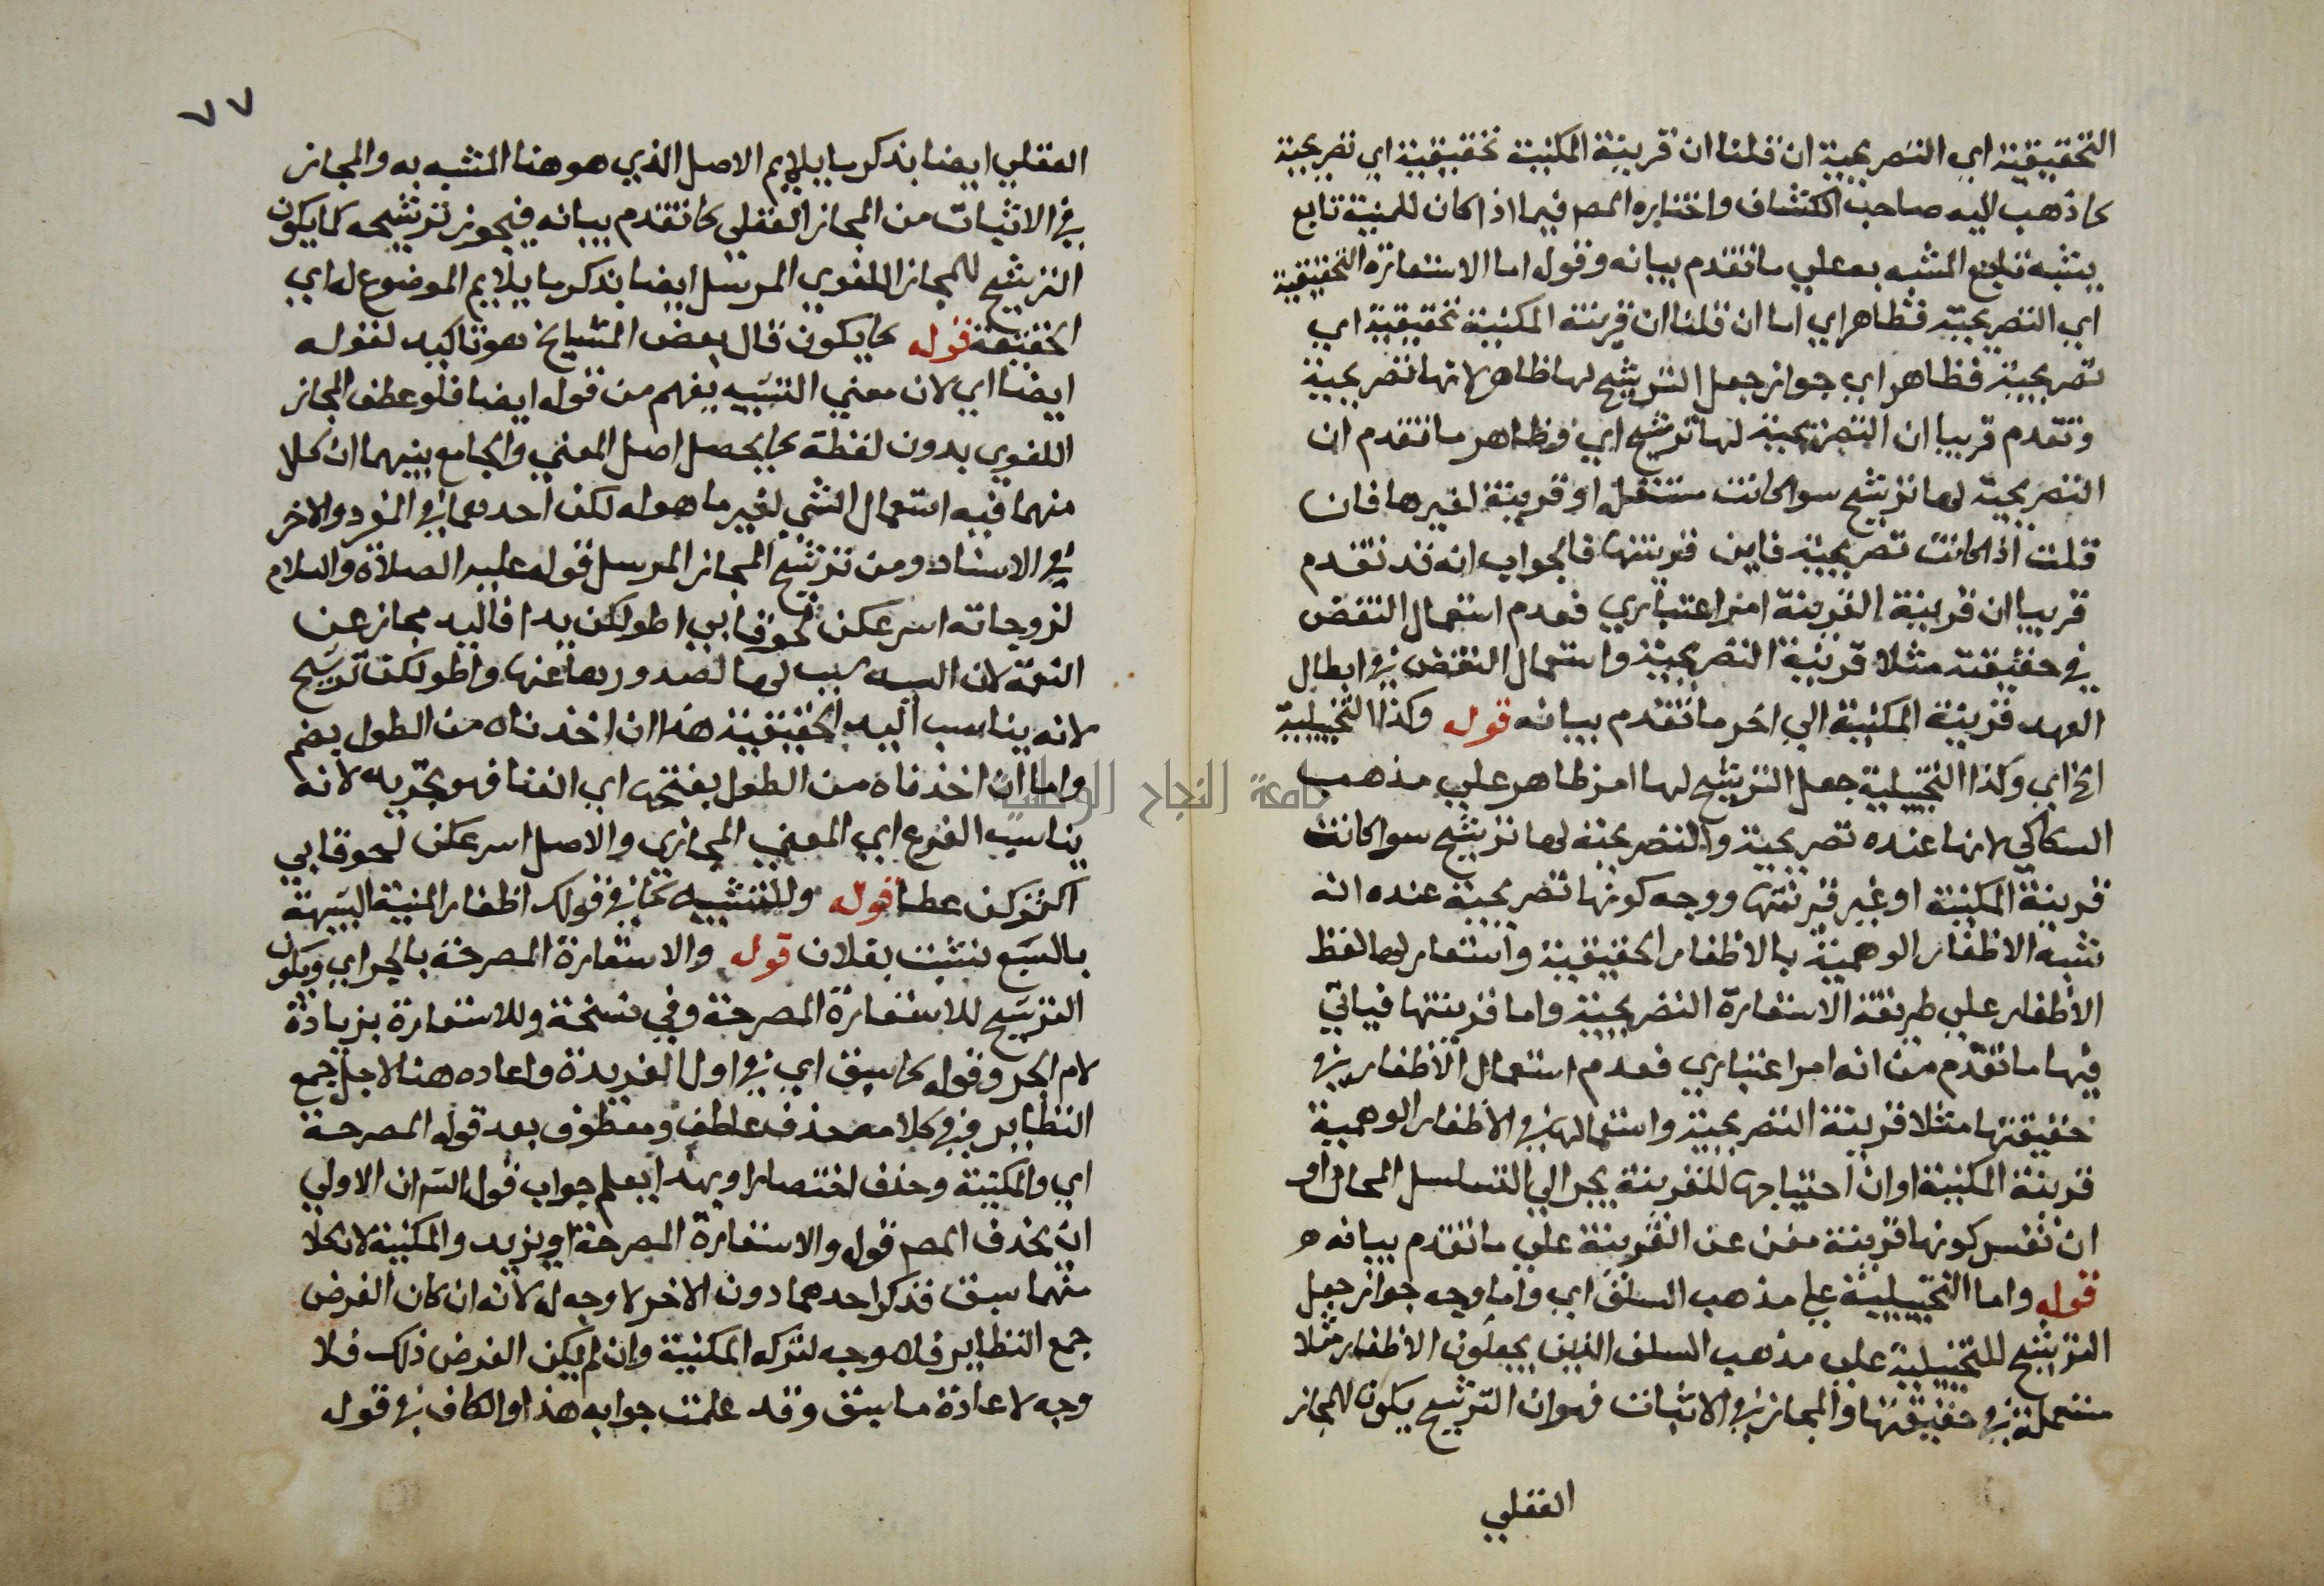 التحقيقية اي التصريحية ان قلنا ان قرينة المكنية تحقيقية اي تصريحية
كما ذهب اليه صاحب الكشاف واختاره المص فيما اذا كان للمنية تابع
يشبه تابع المشبه به علي ما تقدم بيانه وقوله اما الاستعارة التحقيقية
اي التصريحية فظاهر اي اما ان قلنا ان قرينة المكنية تحقيقية اي
تصريحية فظاهر اي جواز جعل الترشيح لها ظاهر لانها تصريحية
وتقدم قريبا ان التصريحية لها ترشيح اي وظاهر ما تقدم ان
التصريحية لها ترشيح سوا كانت مستقلة او قرينة لغيرها فان
قلت اذا كانت تصريحية فاين قرينتها فالجواب انه قد تقدم
قريبا ان قرينة القرينة امر اعتباري فعدم استعمال النقض
في حقيقته مثلا قرينة التصريحية واستعمال النقض في ابطال
العهد قرينة المكنية الي اخر ما تقدم بيانه قوله وكذا التخييلية
الخ اي وكذا التخييلية جعل الترشيح لها امر ظاهر علي مذهب
السكاكي لانها عنده تصريحية والتصريحية لها ترشيح سوا كانت
قرينة المكنية او غير قرينتها ووجه كونها تصريحية عنده انه
شبه الاظفار الوهمية بالاظفار الحقيقية واستعار لها لفظ
الاظفار علي طريقة الاستعارة التصريحية واما قرينتها فياتي
فيها ما تقدم من انه امر اعتباري فعدم استعمال الاظفار في
حقيقتها مثلا قرينة التصريحية واستعمالها في الاظفار الوهمية
قرينة المكنية او ان احتياجها للقرينة يجر الي التسلسل المحال او
ان نفس كونها قرينة مغن عن القرينة علي ما تقدم بيانه ه
قوله واما التخييلية علي مذهب السلف اي واما وجه جواز جعل
الترشيح للتخييلية علي مذهب السلف الذين يجعلون الاظفار مثلا
مستعملة في حقيقتها والمجاز في الاثبات فهو ان الترشيح يكون للمجاز
العقلي
٧٧
العقلي ايضا بذكر ما يلايم الاصل الذي هو هنا المشبه به والمجاز
في الاثبات من المجاز العقلي كما تقدم بيانه فيجوز ترشيحه كما يكون
الترشيح للمجاز اللغوي المرسل ايضا بذكر ما يلايم الموضوع له اي
الحقيقة قوله كما يكون قال بعض المشايخ هو تاكيد لقوله
ايضا اي لان معني التشبيه يفهم من قوله ايضا فلو عطف المجاز
اللغوي بدون لفظة كما يحصل اصل المعني والجامع بينهما ان كلا
منهما فيه استعمال الشي لغير ما هو له لكن احدهما في المفرد والاخر
في الاسناد ومن ترشيح المجاز المرسل قوله عليه الصلاة والسلام
لزوجاته اسرعكن لحوقا بي اطولكن يدا فاليد مجاز عن
النعمة لان اليد سبب لها لصدورها عنها واطولكن ترشيح
لانه يناسب اليد الحقيقية هذا ان اخذناه من الطول بضم
واما ان اخذناه من الطول بفتحها اي الغنا فهو تجريد لانه
يناسب الفرع اي المعني المجازي والاصل اسرعكن لحوقا بي
اكثركن عطا قوله وللتشبيه كما في قولك اظفار المنية الشبيهة
بالسبع نشبت بفلان قوله والاستعارة المصرحة بالجر اي ويكون
الترشيح للاستعارة المصرحة وفي نسخة وللاستعارة بزيادة
لام الجر وقوله كما سبق اي في اول الفريدة واعاده هنا لاجل جمع
النظاير ففي كلامه حذف عاطف ومعطوف بعد قوله المصرحة
اي والمكنية وحذف اختصارا وبهذا يعلم جواب قول الش ان الاولي
ان يحذف المص قوله والاستعارة المصرحة او يزيد والمكنية لان كلا
منهما سبق فذكر احدهما دون الاخر لا وجه له لانه ان كان الغرض
جمع النظاير فلا وجه لتركه المكنية وان لم يكن الغرض ذلك فلا
وجه لاعادة ما سبق وقد علمت جوابه هذا والكاف في قوله
جامعة النجاح الوطنية